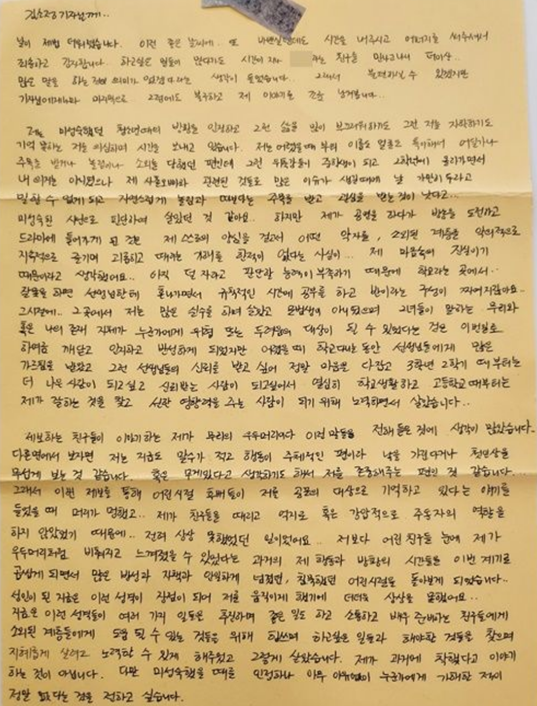 김소정 기자님께..
날이 제법 더워졌습니다. 이런 좋은 날씨에.. 또 바쁘실텐데도 시간을 내주시고 에너지를 써주셔서
죄송하고 감사합니다. 하고싶은 말들이 많다가도 시간이 지나 는 친구를 만나고나서 더이상..
많은 말을 하는 것이 의미가 없겠다라는 생각이 들었습니다. 그래서 불편하실 수 있겠지만
기자님에게나마 마지막으로 고정에도 부족하고 제 이야기를 조금 남겨봅니다...
저는 미성숙했던 청소년때의 방황을 인정하고 그런 삶을 많이 부끄러워하기도 그런 저를 자책하기도
기억 못하는 저를 의심하며 시간을 보내고 있습니다. 저는 어렸을때 부터 이름도 얼굴도 특이해서 어딜가나
주목을 받거나 놀림이나 소외를 당했던 편인데 그런 우둑감들이 중학생이 되고 2학년에 올라가면서
내 의지는 아니었으나 제 사촌오빠와 관련된 것들로 많은 이슈가 생길때에 날 가만히 두라고
말할 수 없게 되고 자연스럽게 놀림과 따돌림보다는 주목을 받고 관심을 받는것이 낫다고...
미성숙한 시선으로 판단하며 살았던 것 같아요. 하지만 제가 공부를 하다가 방송을 도전하고
드라마에 들어가게 된 것은 제 스스로 양심을 걸고서 어떤 약자를, 소외된 계층을 악의적으로
지속적으로 굶기며 괴롭히고 때리는 가해를 한적이 없다는 사실이... 제 마음속에 진실이기
때문이라고 생각했어요.. 아직 덜 자라고 판단할 능력이 부족하기 때문에 학교라는 곳에서..
잘못을 하면 선생님한테 혼나가면서 규칙적인 시간에 공부를 하고 반이라는 구성이 짜여지잖아요..
그시절에.. 그 곳에서 저는 많은 실수를 하며 살았고 모범생이 아니었으며 그녀들이 말하는 무리와
혹은 나의 존재 자체가 누군가에게 위협 또는 두려움에 대상이 될 수 있었다는 것은 이번일로
하여금 깨닫고 인지하고 반성하게 되었지만 어렸을때 학교다닌 동안 선생님들에게 많은
가르침을 받았고 그런 선생님들의 신뢰를 받고 싶어 정말 마음을 다잡고 3학년 2학기 때부터는
더 나은 사람이 되고싶고 신뢰받는 사람이 되고싶어서 열심히 학교생활하고 고등학교때부터는
제가 잘하는 것을 찾고 선한 영향력을 주는 사람이 되기 위해 노력하면서 살았습니다..
제보하는 친구들이 이야기하는 제가 무리의 우두머리이다 이런 말들을 전해 들은 것에 생각이 많았습니다.
다른면에서 보자면 저는 지금도 말수가 적고 행동이 주체적인 편이라 남들 가린다거나 첫인상을
무섭게 보는 것 같습니다. 혹은 무게있다고 생각하기도 해서 저를 존중해주는 편인 것 같습니다.
그래서 이런 제보를 통해 어린시절 후배들이 저를 공포의 대상으로 기억하고 있다는 얘기를
들었을 때 머리가 멍했고.. 제가 친구들을 때리고 억지로 혹은 강압적으로 주동자의 역할을
하지 않았었기 때문에.. 전혀 상상 못했었던 일이었어요.. 저보다 어린 친구들 눈에 제가
우두머리처럼 비춰지고 느껴졌을 수 있었다는 과거의 저 행동과 방황의 시간들을 이번 계기로
곱씹게 되면서 많은 반성과 자책과 안일하게 넘겼던, 침묵했던 어린시절을 돌아보게 되었습니다..
성인이 된 지금은 이런 성격이 장점이 되어 저를 움직이게 했기에 더더욱 상상을 못했어요..
지금은 이런 성격들이 여러 가지 일들을 추진하며 좋은 일도 하고 소통하고 배우 준비하는 친구들에게
소외된 계층들에게 도움 될 수 있는 것들을 위해 힘쓰며 하고싶은 일들과 해야할 것들을 찾으며
지혜롭게 살려고 노력할 수 있게 해주었고 그렇게 살았습니다. 제가 과거에 착했다고 이야기
하는 것이 아닙니다. 다만 미성숙했을 때를 인정하나 아무 이유없이 누군가에게 가해한 적이
정말 없다는 것을 전하고 싶습니다.